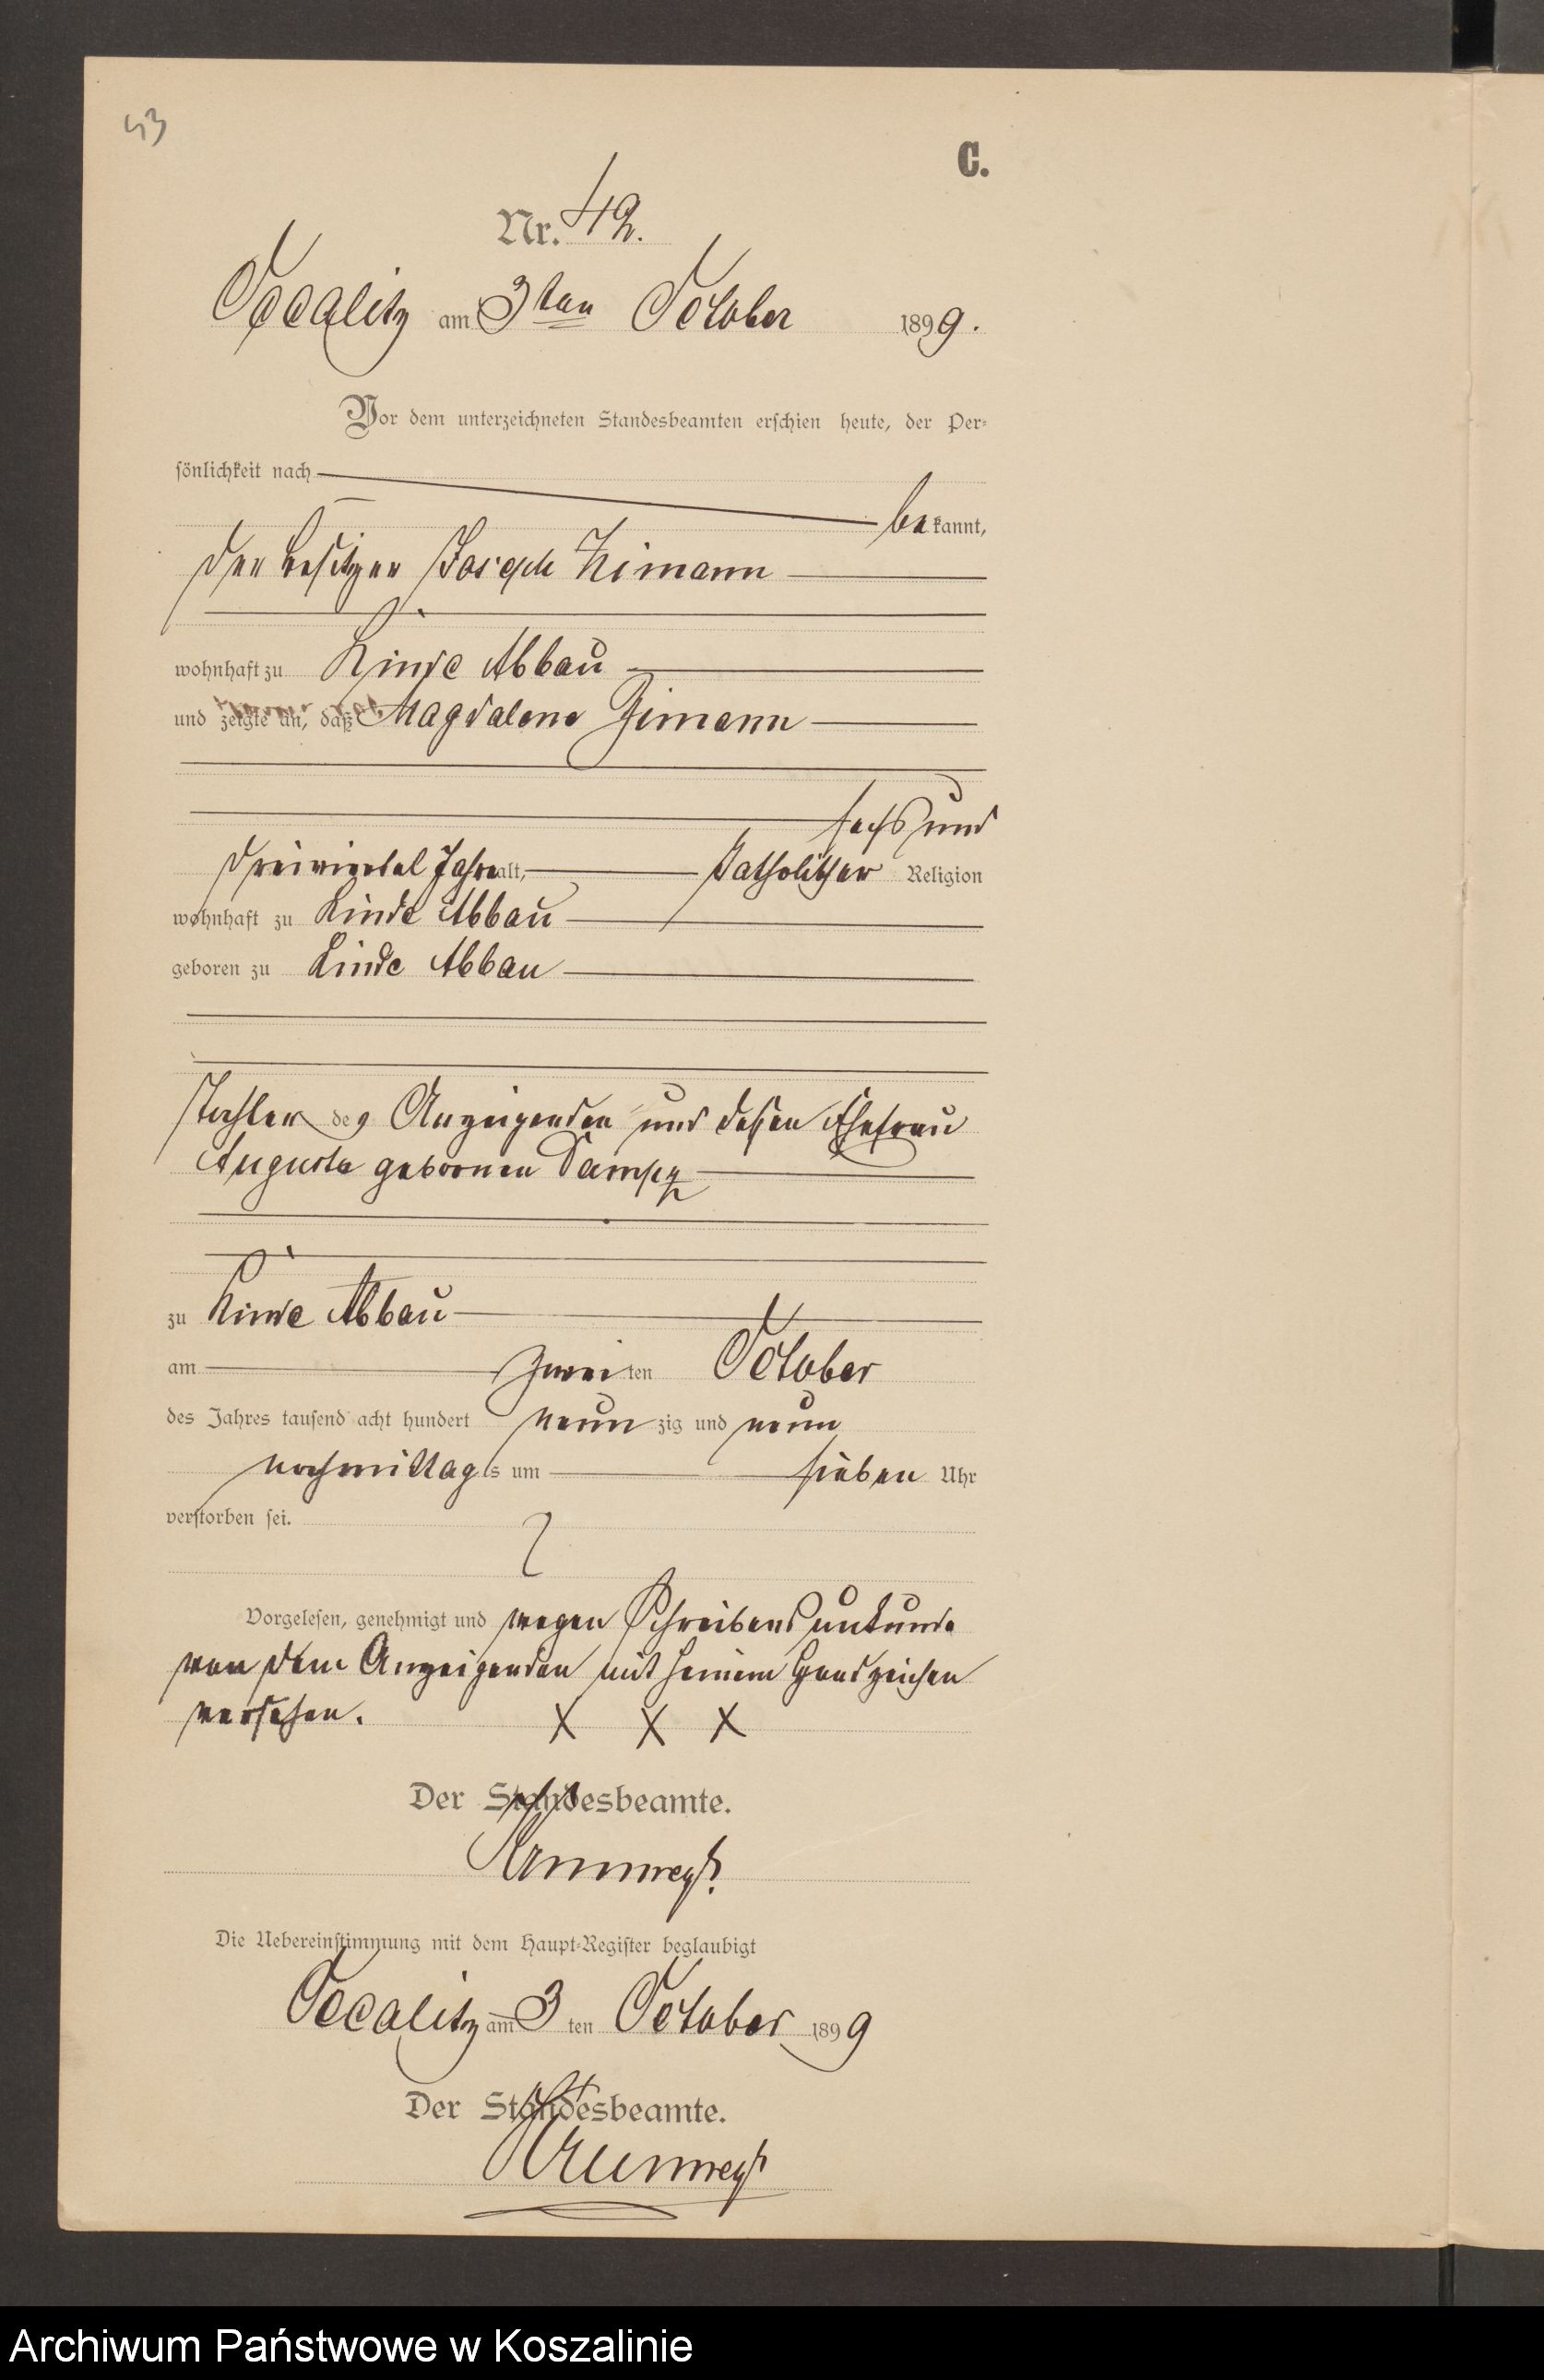 43
C.
Nr. 42.
Occalitz am 3ten October 1899.
Vor dem unterzeichneten Standesbeamten erschien heute, der Per-
sönlichkeit nach
bekannt,
der Besitzer Joseph Zimann
wohnhaft zu Linde Abbau
und zeigte an, daß Magdalene Zimann
sechs und
dreiviertel Jahre alt, katholischer Religion
wohnhaft zu Linde Abbau
geboren zu Linde Abbau
Tochter des Anzeigenden und dessen Ehefrau
Auguste geborenen
zu Linde Abbau
am zweiten October
des Jahres tausend acht hundert neunzig und neun
nachmittags um sieben Uhr
verstorben sei.
Vorgelesen, genehmigt und wegen Schreibensunkunde
von dem Anzeigenden mit seinem Handzeichen
versehen. X X X
Der Standesbeamte.
Die Uebereinstimmung mit dem Haupt-Register beglaubigt
Occalitz am 3ten October 1899
Der Standesbeamte.
Archiwum Państwowe w Koszalinie